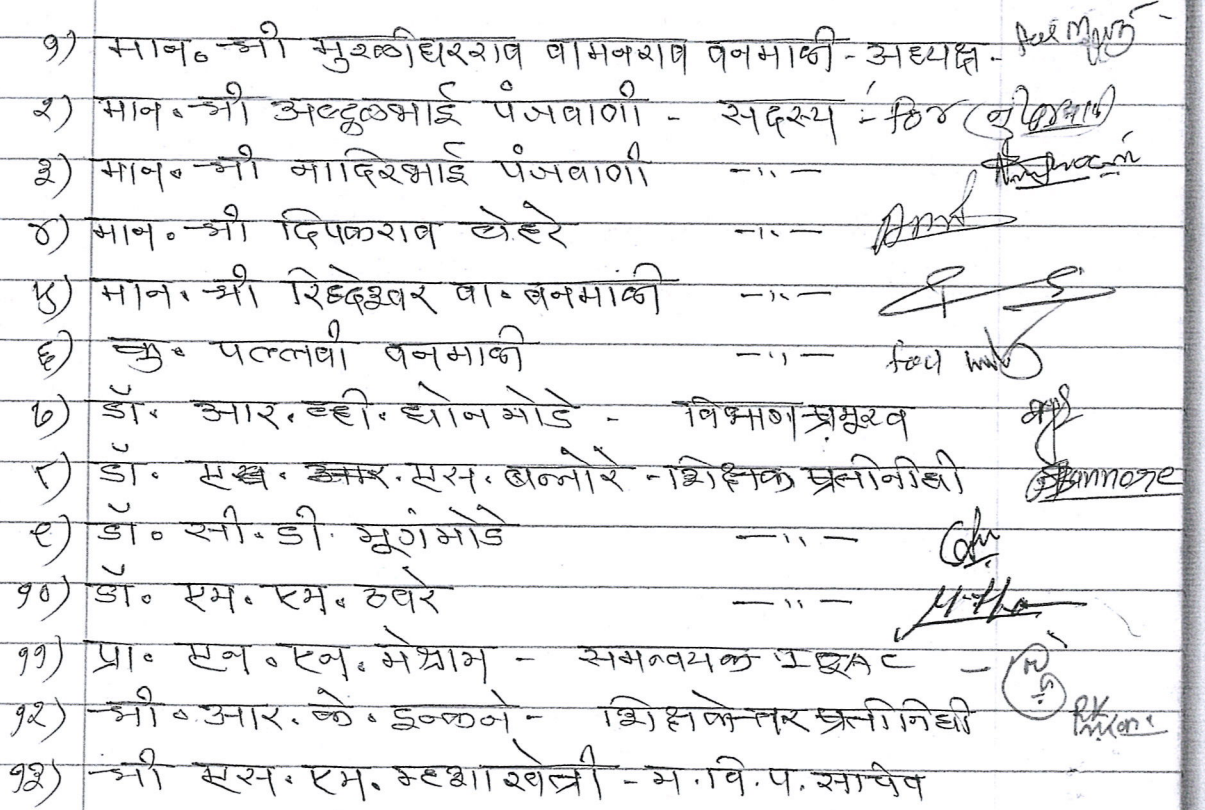 १) मान. श्री मुरळीधरराव वामनराव वनमाळी - अध्यक्ष -
२) मान. श्री अब्दुलभाई पंजवाणी - सदस्य :-
३) मान. श्री नादिरभाई पंजवाणी -"-
४) मान. श्री दिपकराव बेहरे -"-
५) मान. श्री रिद्देश्वर वा. वनमांळी -"-
६) कु. पल्लवी वनमाळी -"-
७) डॉ. आर. व्ही. घोनमोडे - विभाग प्रमुख
८) डॉ. एस. बन्नोरे - शिक्षक प्रतीनीधी Bannore
९) डॉ. सी. डी. मूगंमोडे -"-
१०) डॉ. एम. एम. ठवरे -"-
११) प्रा. एन. एन. मेश्राम - समन्वयक IQAC -
१२) श्री. आर. के. इन्कने - शिक्षकेतर प्रतीनिधी
१३) श्री एस. एम. म्हशाखेत्री - म. वि. प. साचिव